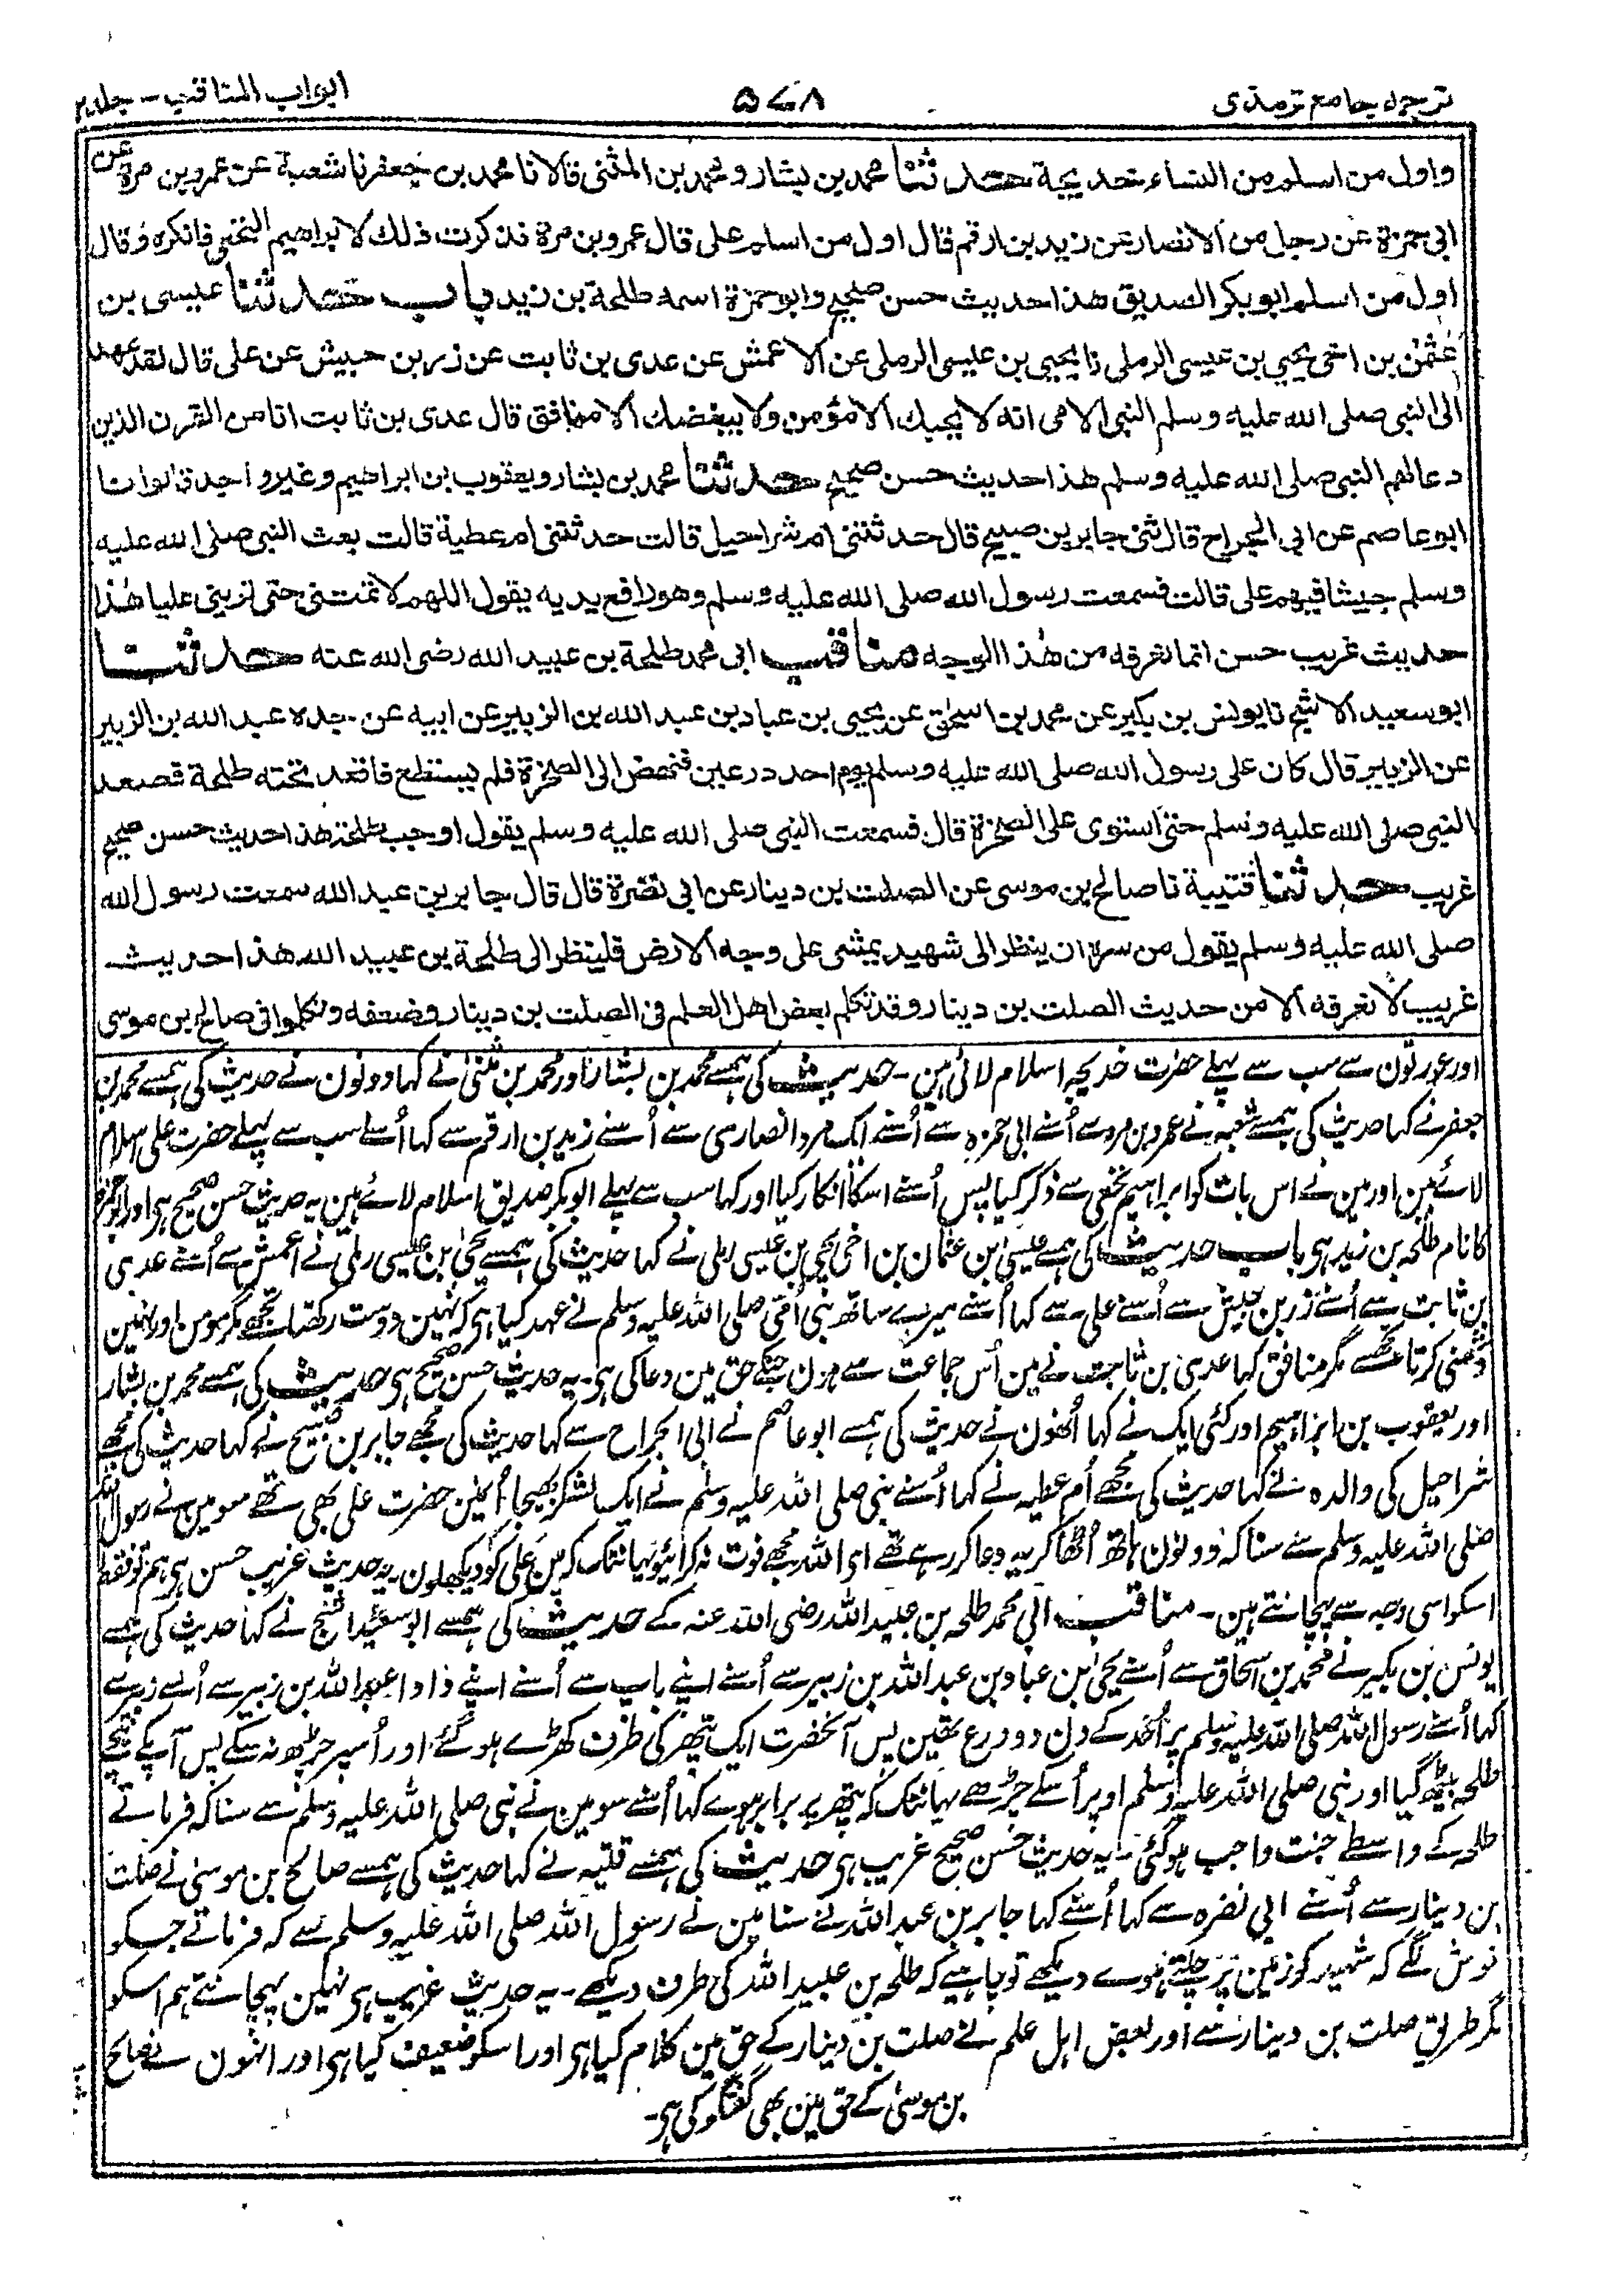 ترجمہ جامع ترمذی
۵۷۸
ابواب المناقب - جلد ۲
واول من اسلم من النساء خديجة حدثنا محمد بن بشار و محمد بن المثنى قالا نا محمد بن جعفر نا شعبة عن عمرو بن مرة عن
ابى حمزة عن رجل من الانصار عن زيد بن ارقم قال اول من اسلم على قال عمرو بن مرة فذكرت ذلك لابراهيم النخعى فانكره وقال
اول من اسلم ابو بكر الصديق هذا حديث حسن صحيح وابو حمزة اسمه طلحة بن زيد باب حدثنا عيسى بن
عثمٰن بن اخى يحيى بن عيسى الرملى نا يحيى بن عيسى الرملى عن الاعمش عن عدى بن ثابت عن زر بن حبيش عن على قال لقد عهد
الى النبى صلى الله عليه وسلم النبى الامى انه لا يحبك الا مؤمن ولا يبغضك الا منافق قال عدى بن ثابت انا من القرن الذين
دعا لهم النبى صلى الله عليه وسلم هذا حديث حسن صحيح حدثنا محمد بن بشار و يعقوب بن ابراهيم وغير واحد قالوا نا
ابو عاصم عن ابى الجراح قال ثنى جابر بن صبيح قال حدثتنى ام شراحيل قالت حدثتنى ام عطية قالت بعث النبى صلى الله عليه
وسلم جيشا فيهم على قالت فسمعت رسول الله صلى الله عليه وسلم وهو رافع يديه يقول اللهم لا تمتنى حتى ترينى عليا هٰذا
حديث غريب حسن انما نعرفه من هٰذا الوجه مناقب ابى محمد طلحة بن عبيد الله رضى الله عنه حدثنا
ابو سعيد الاشج نا يونس بن بكير عن محمد بن اسحٰق عن يحيى بن عباد بن عبد الله بن الزبير عن ابيه عن جده عبد الله بن الزبير
عن الزبير قال كان على رسول الله صلى الله عليه وسلم يوم احد درعين فنهض الى الصخرة فلم يستطع فاقعد تحته طلحة فصعد
النبى صلى الله عليه وسلم حتى استوى على الصخرة قال فسمعت النبى صلى الله عليه وسلم يقول اوجب طلحة هذا حديث حسن صحيح
غريب حدثنا قتيبة نا صالح بن موسى عن الصلت بن دينار عن ابى نضرة قال قال جابر بن عبد الله سمعت رسول الله
صلى الله عليه وسلم يقول من سره ان ينظر الى شهيد يمشى على وجه الارض فلينظر الى طلحة بن عبيد الله هذا حديث
غريب لا نعرفه الا من حديث الصلت بن دينار وقد تكلم بعض اهل العلم فى الصلت بن دينار وضعفه وتكلموا فى صالح بن موسى
اور عورتون سے سب سے پہلے حضرت خدیجہ اسلام لائی ہین - حدیث کی ہمسے محمد بن بشار اور محمد بن مثنیٰ نے کہا دونون نے حدیث کی ہمسے محمد بن
جعفر نے کہا حدیث کی ہمسے شعبہ نے عمرو بن مرہ سے اُسنے ابی حمزہ سے اُسنے ایک مرد انصاری سے اُسنے زید بن ارقم سے کہا اُسنے سب سے پہلے حضرت علی اسلام
لائے ہین اور مین نے اس بات کو ابراہیم نخعی سے ذکر کیا پس اُسنے اسکا انکار کیا اور کہا سب سے پہلے ابوبکر صدیق اسلام لائے ہین یہ حدیث حسن صحیح ہی اور ابو حمزہ
کا نام طلحہ بن زید ہی باب حدیث کی ہمسے عیسیٰ بن عثمان بن اخی یحییٰ بن عیسیٰ رملی نے کہا حدیث کی ہمسے یحییٰ بن عیسیٰ رملی نے اعمش سے اُسنے عدی
بن ثابت سے اُسنے زر بن حبیش سے اُسنے علی سے کہا اُسنے میرے ساتھ نبی اُمی صلی اللہ علیہ وسلم نے عہد کیا ہی کہ نہین دوست رکھتا تجھے مگر مومن اور نہین
دشمنی کرتا تجھسے مگر منافق کہا عدی بن ثابت نے مین اُس جماعت سے ہون جنکے حق مین دعا کی ہی - یہ حدیث حسن صحیح ہی حدیث کی ہمسے محمد بن بشار
اور یعقوب بن ابراہیم اور کئی ایک نے کہا اُنھون نے حدیث کی ہمسے ابو عاصم نے ابی الجراح سے کہا حدیث کی مجھے جابر بن صبیح نے کہا حدیث کی مجھے
شراحیل کی والدہ نے کہا حدیث کی مجھے اُم عطیہ نے کہا اُسنے نبی صلی اللہ علیہ وسلم نے ایک لشکر بھیجا اُسمین حضرت علی بھی تھے سو مین نے رسول اللہ
صلی اللہ علیہ وسلم سے سنا کہ دونون ہاتھ اُٹھا کر یہ دعا کر رہے تھے ای اللہ مجھے فوت نہ کرائیو یہانتک کہ مین علی کو دیکھ لون - یہ حدیث غریب حسن ہی ہم تو فقط
اسکو اسی وجہ سے پہچانتے ہین - مناقب ابی محمد طلحہ بن عبید اللہ رضی اللہ عنہ کے حدیث کی ہمسے ابو سعید اشج نے کہا حدیث کی ہمسے
یونس بن بکیر نے محمد بن اسحاق سے اُسنے یحییٰ بن عباد بن عبد اللہ بن زبیر سے اُسنے اپنے باپ سے اُسنے اپنے دادا عبد اللہ بن زبیر سے اُسنے زبیر سے
کہا اُسنے رسول اللہ صلی اللہ علیہ وسلم پر اُحد کے دن دو درع تھین پس آنحضرت ایک پتھر کی طرف کھڑے ہو گئے اور اُسپر چڑھ نہ سکے پس آپکے نیچے
طلحہ بیٹھ گیا اور نبی صلی اللہ علیہ وسلم اوپر اُسکے چڑھے یہانتک کہ پتھر پر برابر ہوے کہا اُسنے سو مین نے نبی صلی اللہ علیہ وسلم سے سنا کہ فرماتے
طلحہ کے واسطے جنت واجب ہو گئی - یہ حدیث حسن صحیح غریب ہی حدیث کی ہمسے قتیبہ نے کہا حدیث کی ہمسے صالح بن موسیٰ نے صلت
بن دینار سے اُسنے ابی نضرہ سے کہا اُسنے کہا جابر بن عبد اللہ نے سنا مین نے رسول اللہ صلی اللہ علیہ وسلم سے کہ فرماتے جسکو
خوش لگے کہ شہید کو زمین پر چلتے ہوے دیکھے تو چاہیے کہ طلحہ بن عبید اللہ کی طرف دیکھے - یہ حدیث غریب ہی نہین پہچانتے ہم اسکو
مگر طریق صلت بن دینار سے اور بعض اہل علم نے صلت بن دینار کے حق مین کلام کیا ہی اور اسکو ضعیف کیا ہی اور انہون نے صالح
بن موسیٰ کے حق مین بھی گفتگو کی ہی -